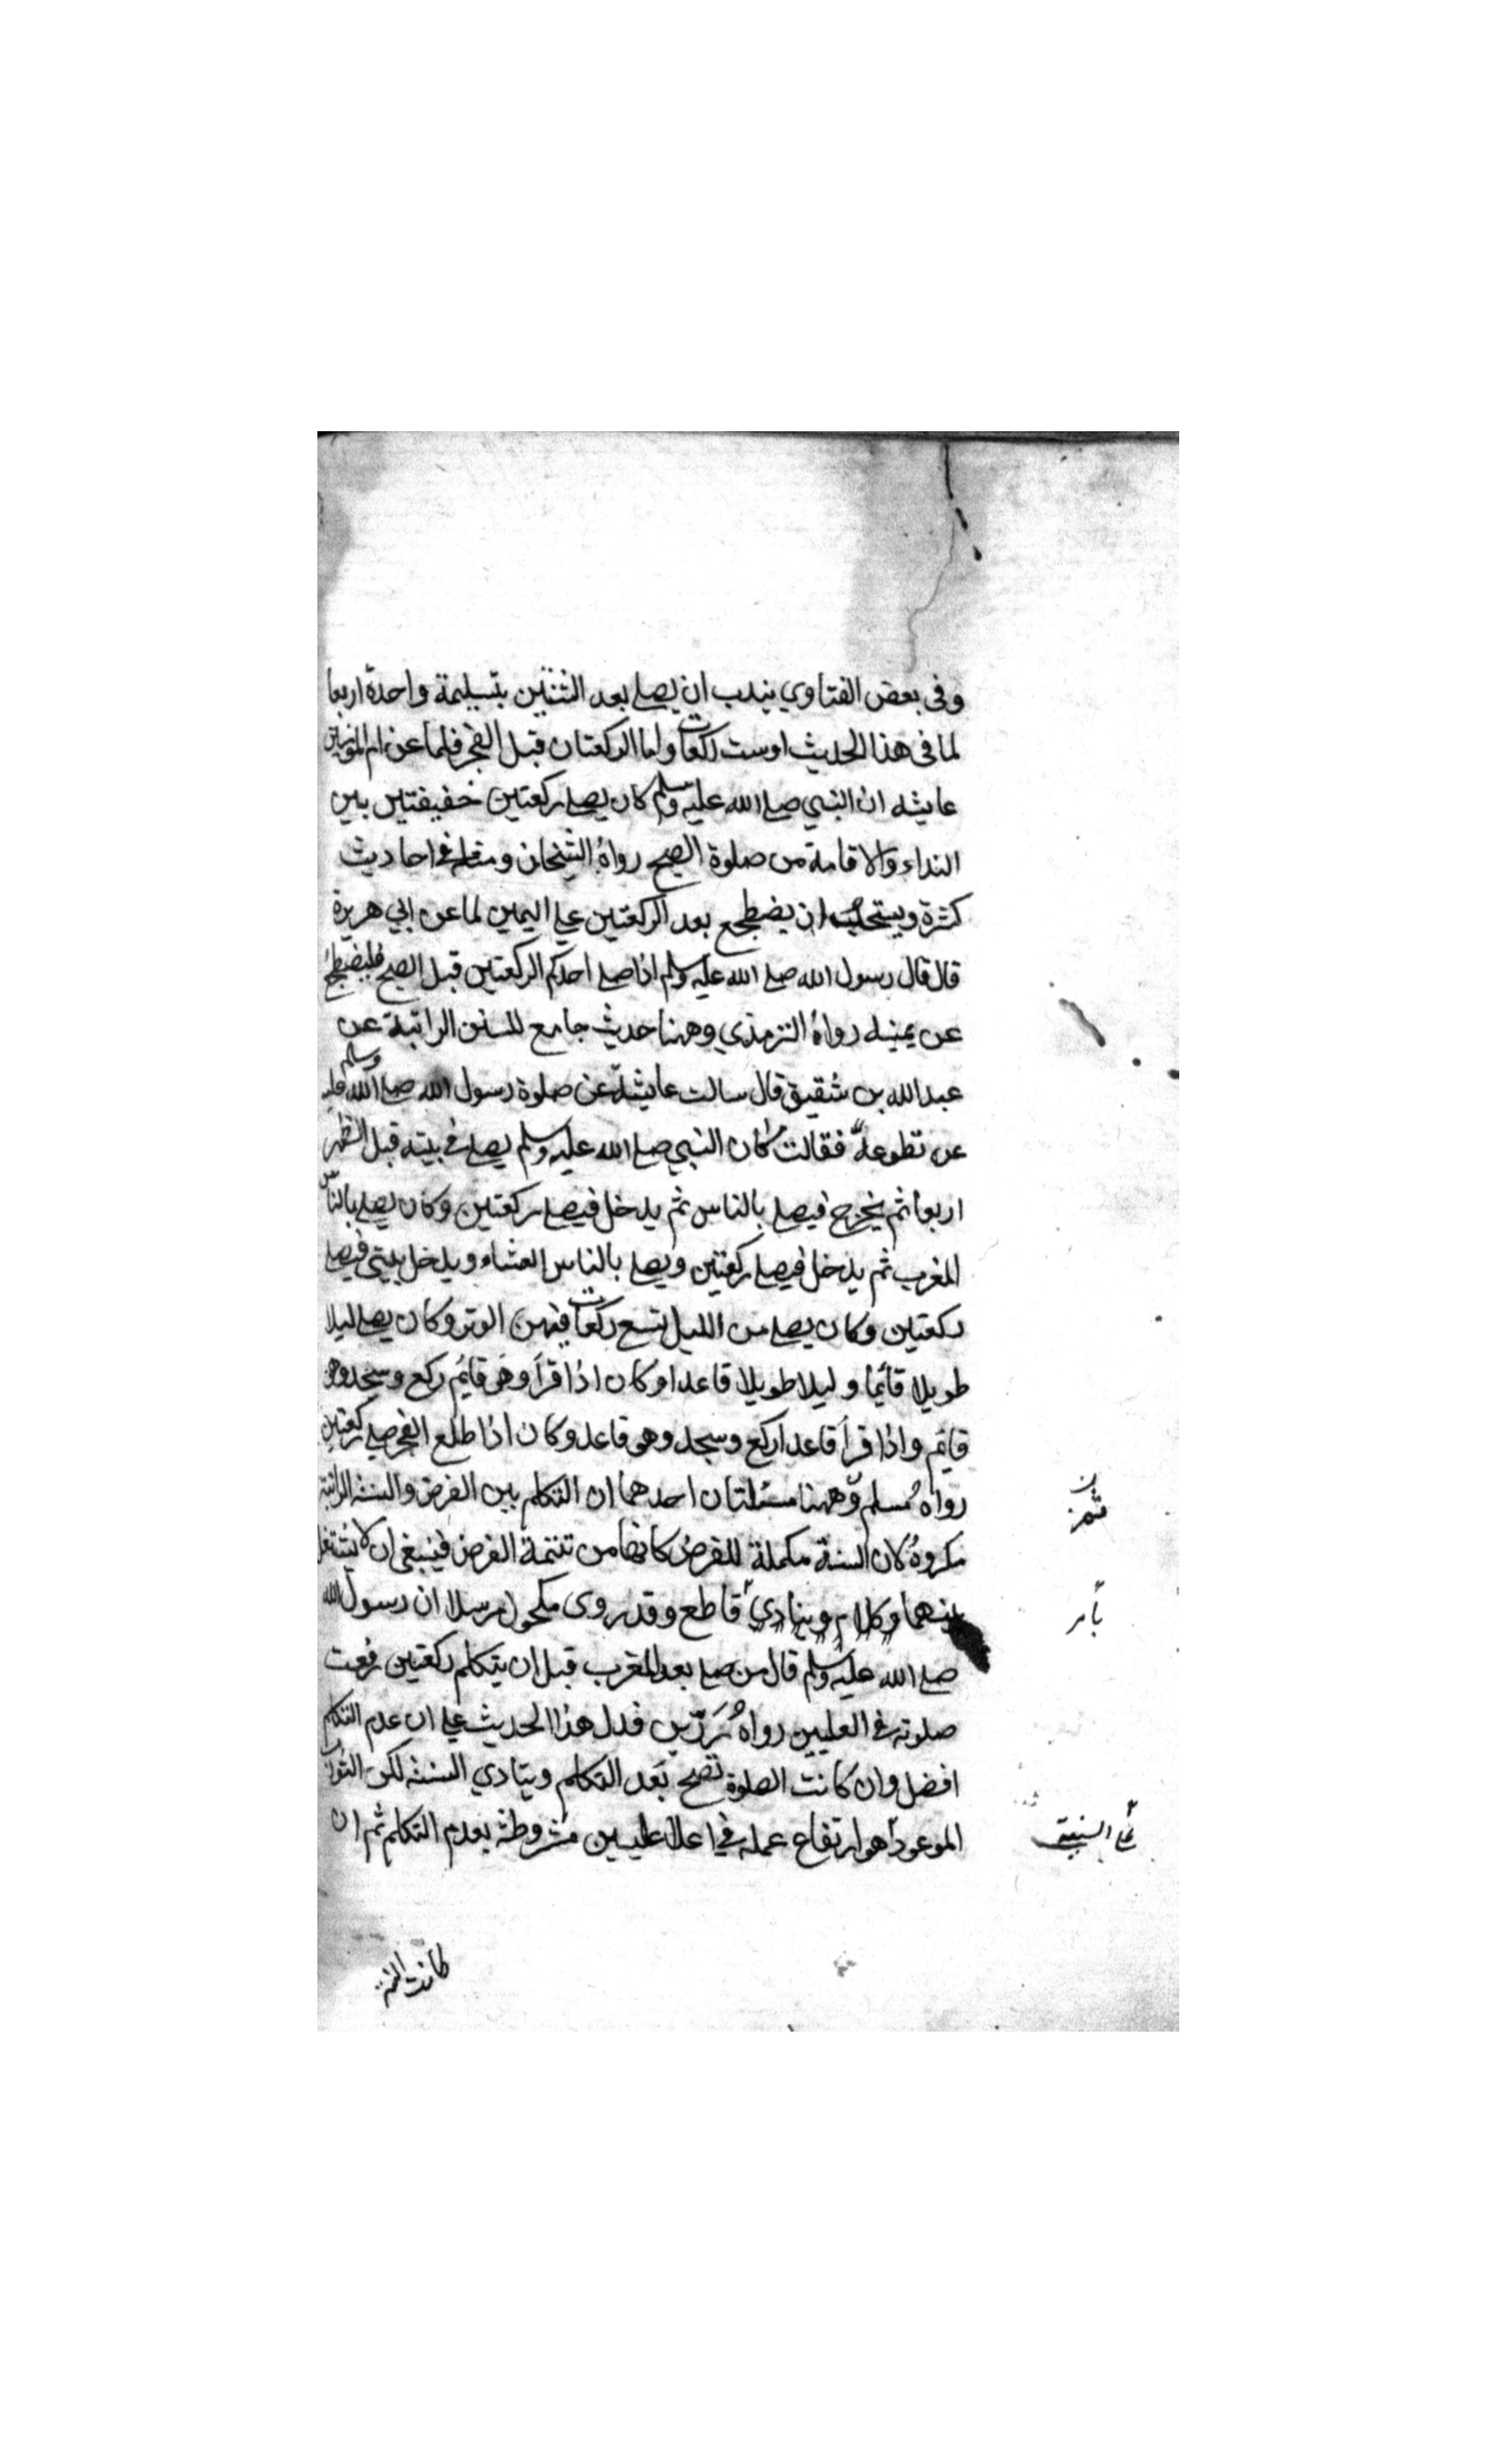 وفى بعض الفتاوي يندب ان يصلے بعد الثنتين بتسليمة واحدة اربعا
لما فى هذا الحديث اوست ركعات واما الركعتان قبل الفجر فلما عن ام المؤمنين
عايشه ان النبي صلے الله عليه وسلم كان يصلے ركعتين خفيفتين بين
النداء والاقامة من صلوة الصبح رواهُ الشيخان ومثله فى احاديث
كثيرة ويستحب ان يضطجع بعد الركعتين علے اليمين لما عن ابي هريرة
قال قال رسول الله صلے الله عليه وسلم اذا صلے احدكم الركعتين قبل الصبح فليضطجع
عن يمينه رواهُ الترمذي وههنا حديث جامع للسنن الراتبة عن
عبدالله بن شقيق قال سالت عايشة عن صلوة رسول الله صلے الله عليه وسلم
عن تطوعه فقالت كان النبي صلے الله عليه وسلم يصلے فے بيته قبل الظهر
اربعا ثم يخرج فيصلے بالناس ثم يدخل فيصلے ركعتين وكان يصلے بالناس
المغرب ثم يدخل فيصلے ركعتين ويصلے بالناس العشاء ويدخل بيتى فيصلے
ركعتين وكان يصلے من الليل تسع ركعات فيهن الوتر وكان يصلے ليلا
طويلا قائما وليلا طويلا قاعدا وكان اذا قرأ وهو قايم ركع وسجد وهو
قايم واذا قرأ قاعدا ركع وسجد وهو قاعد وكان اذا طلع الفجر صلے ركعتين
رواهُ مسلم وههنا مسئلتان احدهما ان التكلم بين الفرض والسنة الراتبة
مكروهُ لان السنة مكملة للفرض كانها من تتمة الفرض فينبغى ان لا يشتغل
بينهما وكلام وبنادي قاطع وقد روى مكحول مرسلا ان رسول الله
صلے الله عليه وسلم قال من صلے بعد المغرب قبل ان يتكلم ركعتين رفعت
صلوته فے العليين رواهُ رزين فدل هذا الحديث علے ان عدم التكلم
افضل وان كانت الصلوة تصح بعد التكلم ويتادي السنة لكن الثواب
الموعود هو ارتفاع عمله في اعلا عليين مشروطة بعدم التكلم ثم ان
بأمر